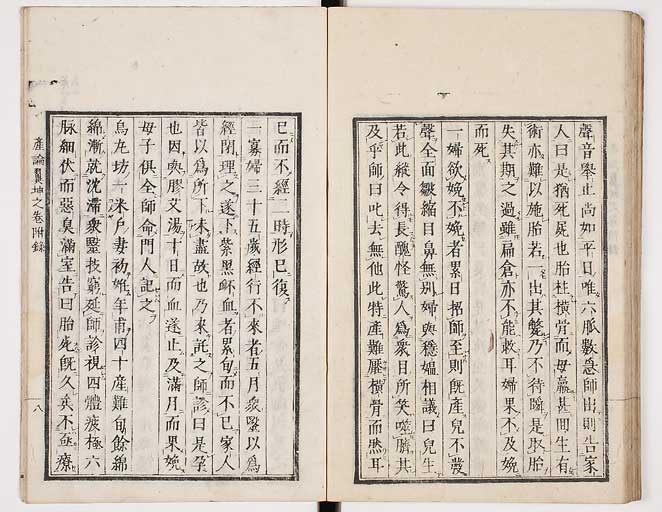 聲音擧止尚如平日唯六脈數急師出則告家
人曰是猶死屍也胎柱横骨而毋羸甚間生有
術亦難以施胎若一出其斃乃不待瞬是取胎
失其期之過雖扁倉亦不能救耳婦果不及娩
而死
一婦欲娩不娩者累日招師至則既產兒不發
聲全面皺縮目鼻無別婦與穩媼相議曰兒生
若此縱令得長醜怪驚人為衆目所笑隣其
及乎師曰叱去無他此特產難壓横骨而然耳
已而不經二時形已復
一寡婦三十五歲經行不來者五月衆醫以為
經閉理之遂下紫黑衃血者累旬而不已家人
皆以為所下未盡故也乃來託之師診曰是孕
也因與膠艾湯十日而血遂止及滿月而果娩
母子俱全師命門人記之
烏丸坊六米戸妻初姙年甫四十產難旬餘綿
綿漸就沈滯衆醫技窮延師診視四體疲極六
脉細伏而惡臭滿室告曰胎死既久矣不亟療
產論翼坤之卷附錄
八